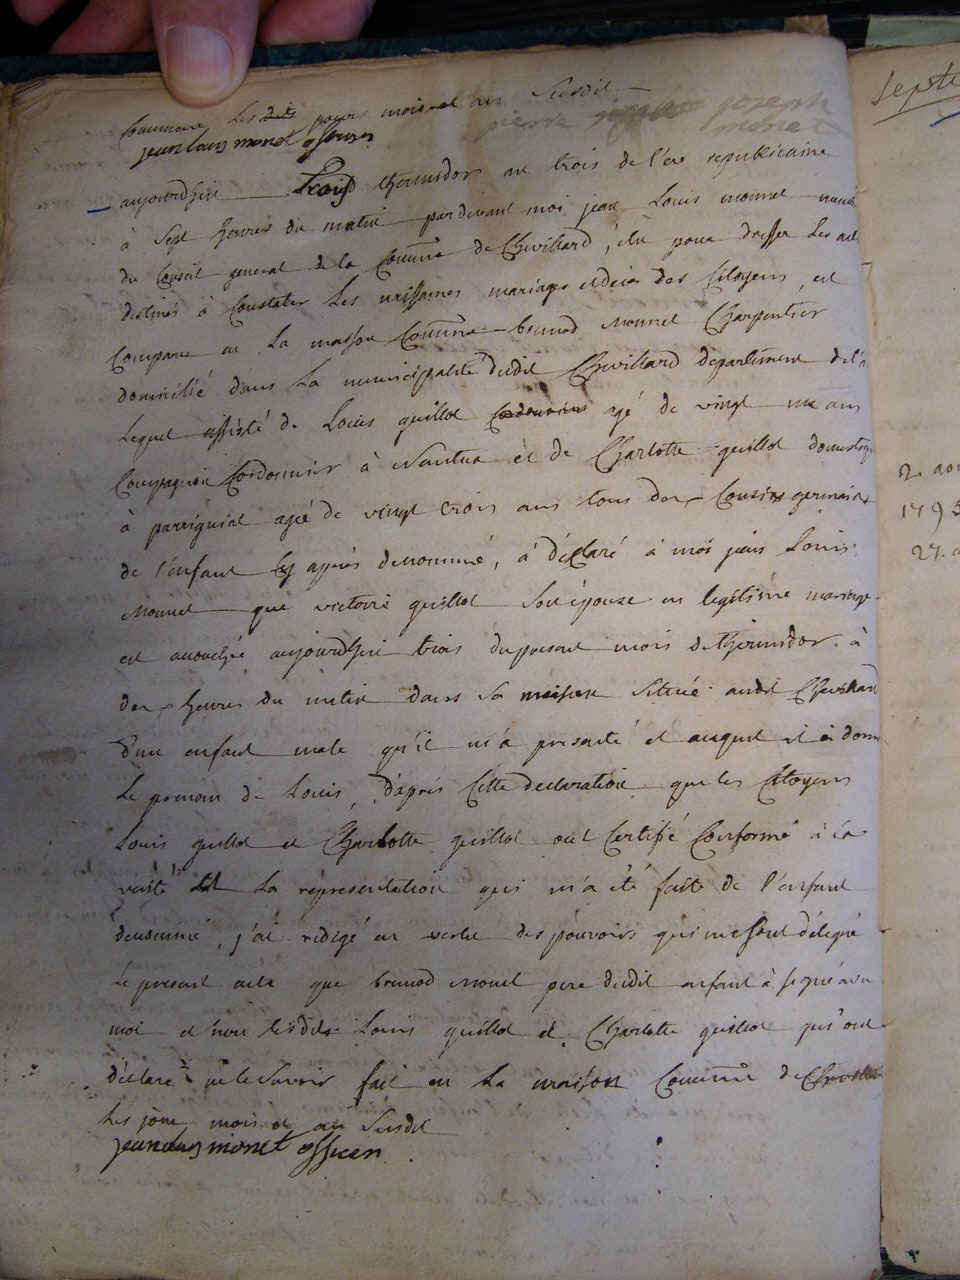 Commune les dits jours mois et an Susdit
jean louis monet officier
pierre joseph
monet
aujourdhui trois thermidor an trois de l'ere republicaine
à sept heures du matin pardevant moi jean Louis monnet membre
du Conseil general de la Commune de Chevillard, élu pour dresser les actes
destinés à Constater Les naissances mariages et decès des Citoyens, est
Comparu en La maison Commune bernard Monnet Charpentier
domicilié dans La municipalité dudit Chevillard departement de l'ain
Lequel assisté de Louis guillot agé de vingt un ans
Compagnon Cordonnier à Nantua et de Charlotte guillot domestique
à agé de vingt trois ans tous deux Cousins germains
de l'enfant Cy après denommé, a déclaré à moi jean Louis
Monnet que victoire guillot Son épouze en legitime mariage
est accouchée aujourdhui trois du présent mois de thermidor à
deux heures du matin dans Sa maison Située audit Chevillard
d'un enfant male qu'il m'a presenté et auquel il a donné
Le prenom de Louis, d'après Cette declaration que les Citoyens
Louis guillot et Charlotte guillot ont Certifié Conforme à la
verité et La representation qui m'a été faite de l'enfant
denommé, j'ai rédigé en vertu des pouvoirs qui me sont délégués
Le present acte que bernard Monnet pere dudit enfant à signé avec
moi et non lesdits Louis guillot et Charlotte guillot qui ont
déclaré ne le Savoir fait en La maison Commune de Chevillard
Les jour mois et an Susdit
jean louis monet officier
Septe
2. aou
1795
27.